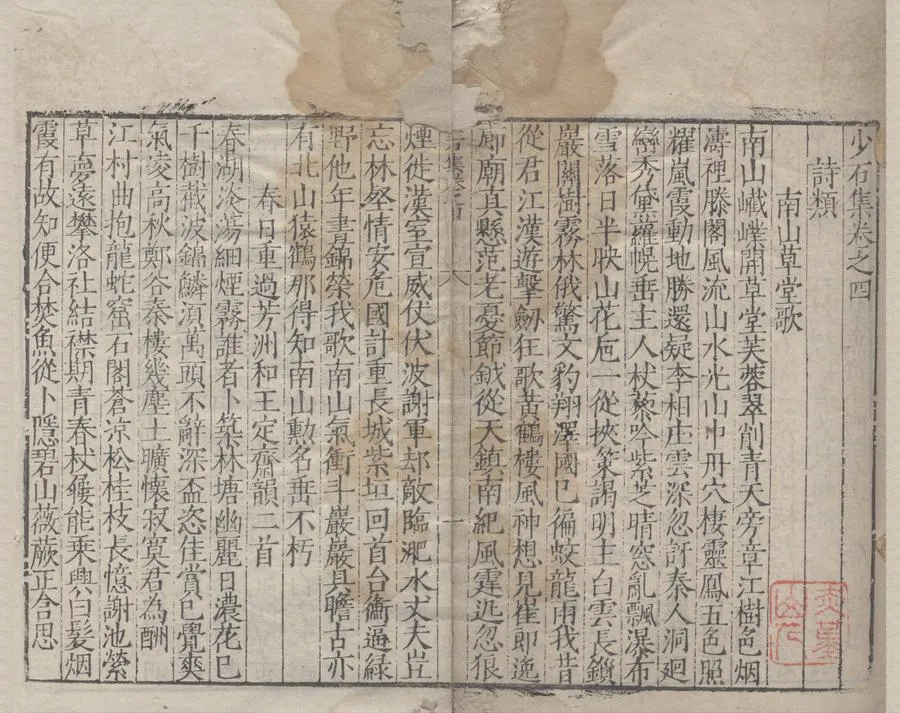 少石集卷之四
詩類
南山草堂歌
南山巀嶪開草堂芙蓉翠削青天旁章江樹色烟
濤裡滕閣風流山水光山巾丹穴棲靈鳳五色照
耀嵐霞動地勝還疑李相庄雲深忽訝秦人洞廻
巒秀羅幌垂主人杖藜吟紫芝晴窓亂飄瀑布
雪落日半映山花卮一從挾策謁明主白雲長鎖
巖關樹霧林俄驚文豹翔澤國已徧蛟龍雨我昔
從君江漢遊擊劒狂歌黃鶴樓風神想見崔郎逸
廊廟真懸范老憂節鉞從天鎮南紀風霆迅忽狼
石集卷四
一
煙徙漢室宣威仗伏波謝軍却敵臨淝水丈夫豈
忘林壑情安危國計重長城紫垣回首台衡逼綠
野他年晝錦榮我歌南山氣衝斗巖巖具瞻古亦
有北山猿鶴那得知南山勳名垂不朽
春日重過芳洲和王定齋韻二首
春湖淡蕩細煙霧誰者卜築林塘幽麗日濃花已
千樹截波錦鱗湏萬頭不辭深盃恣佳賞已覺爽
氣凌高秋鄭谷秦樓幾塵土曠懷寂寞君為酬
江村曲抱龍蛇窟石閣蒼涼松桂枝長憶謝池縈
草夢遠攀洛社結襟期青春杖屨能乘興白髮烟
霞有故知便合焚魚從卜隱碧山薇蕨正合思